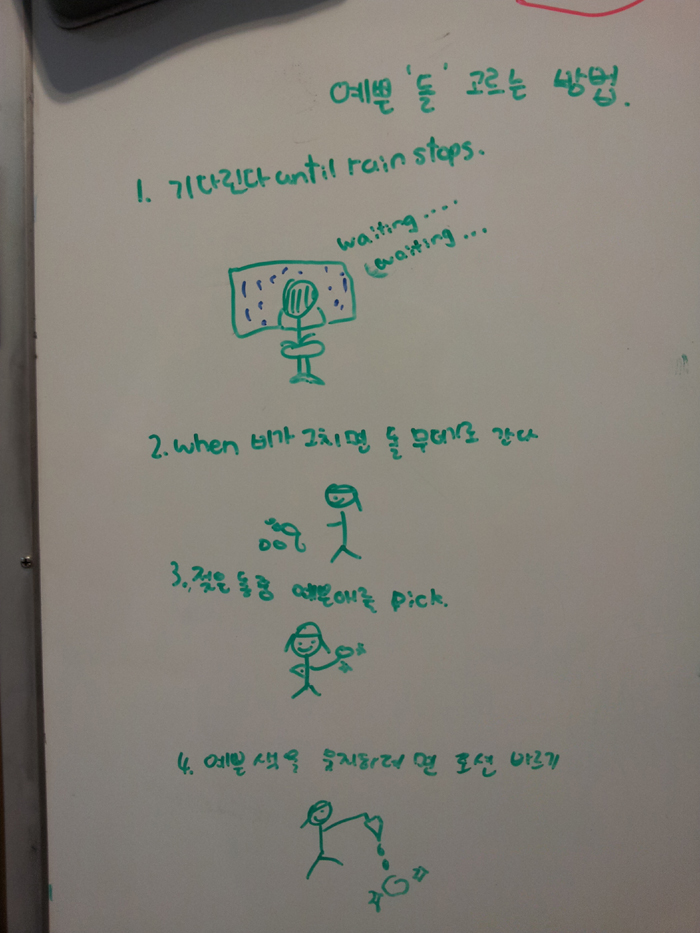 예쁜 '돌' 고르는 방법.
1. 기다린다 until rain stops.
waiting....
waiting...
2. when 비가 그치면 돌 무데기로 간다
3. 젖은 돌중 예쁜애를 pick.
4. 예쁜 색을 유지하려면 로션 바르기